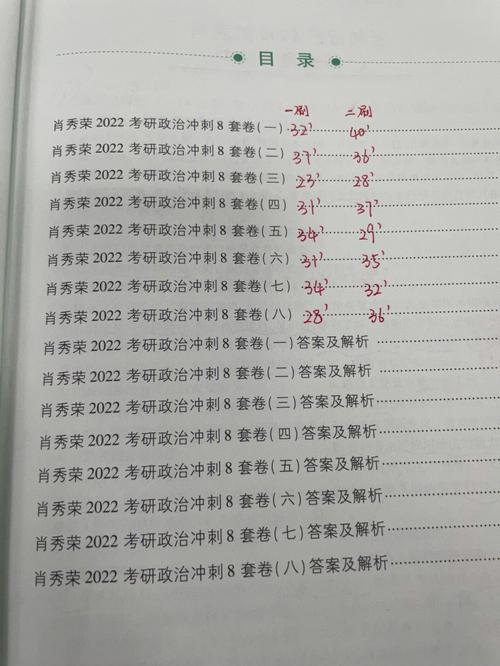 目 录
一刷 二刷
肖秀荣 2022 考研政治冲刺 8 套卷(一) 32' 40'
肖秀荣 2022 考研政治冲刺 8 套卷(二) 37' 36'
肖秀荣 2022 考研政治冲刺 8 套卷(三) 23' 28'
肖秀荣 2022 考研政治冲刺 8 套卷(四) 31' 37'
肖秀荣 2022 考研政治冲刺 8 套卷(五) 34' 29'
肖秀荣 2022 考研政治冲刺 8 套卷(六) 31' 35'
肖秀荣 2022 考研政治冲刺 8 套卷(七) 34' 32'
肖秀荣 2022 考研政治冲刺 8 套卷(八) 28' 36'
肖秀荣 2022 考研政治冲刺 8 套卷(一)答案及解析
肖秀荣 2022 考研政治冲刺 8 套卷(二)答案及解析
肖秀荣 2022 考研政治冲刺 8 套卷(三)答案及解析
肖秀荣 2022 考研政治冲刺 8 套卷(四)答案及解析
肖秀荣 2022 考研政治冲刺 8 套卷(五)答案及解析
肖秀荣 2022 考研政治冲刺 8 套卷(六)答案及解析
肖秀荣 2022 考研政治冲刺 8 套卷(七)答案及解析
肖秀荣 2022 考研政治冲刺 8 套卷(八)答案及解析